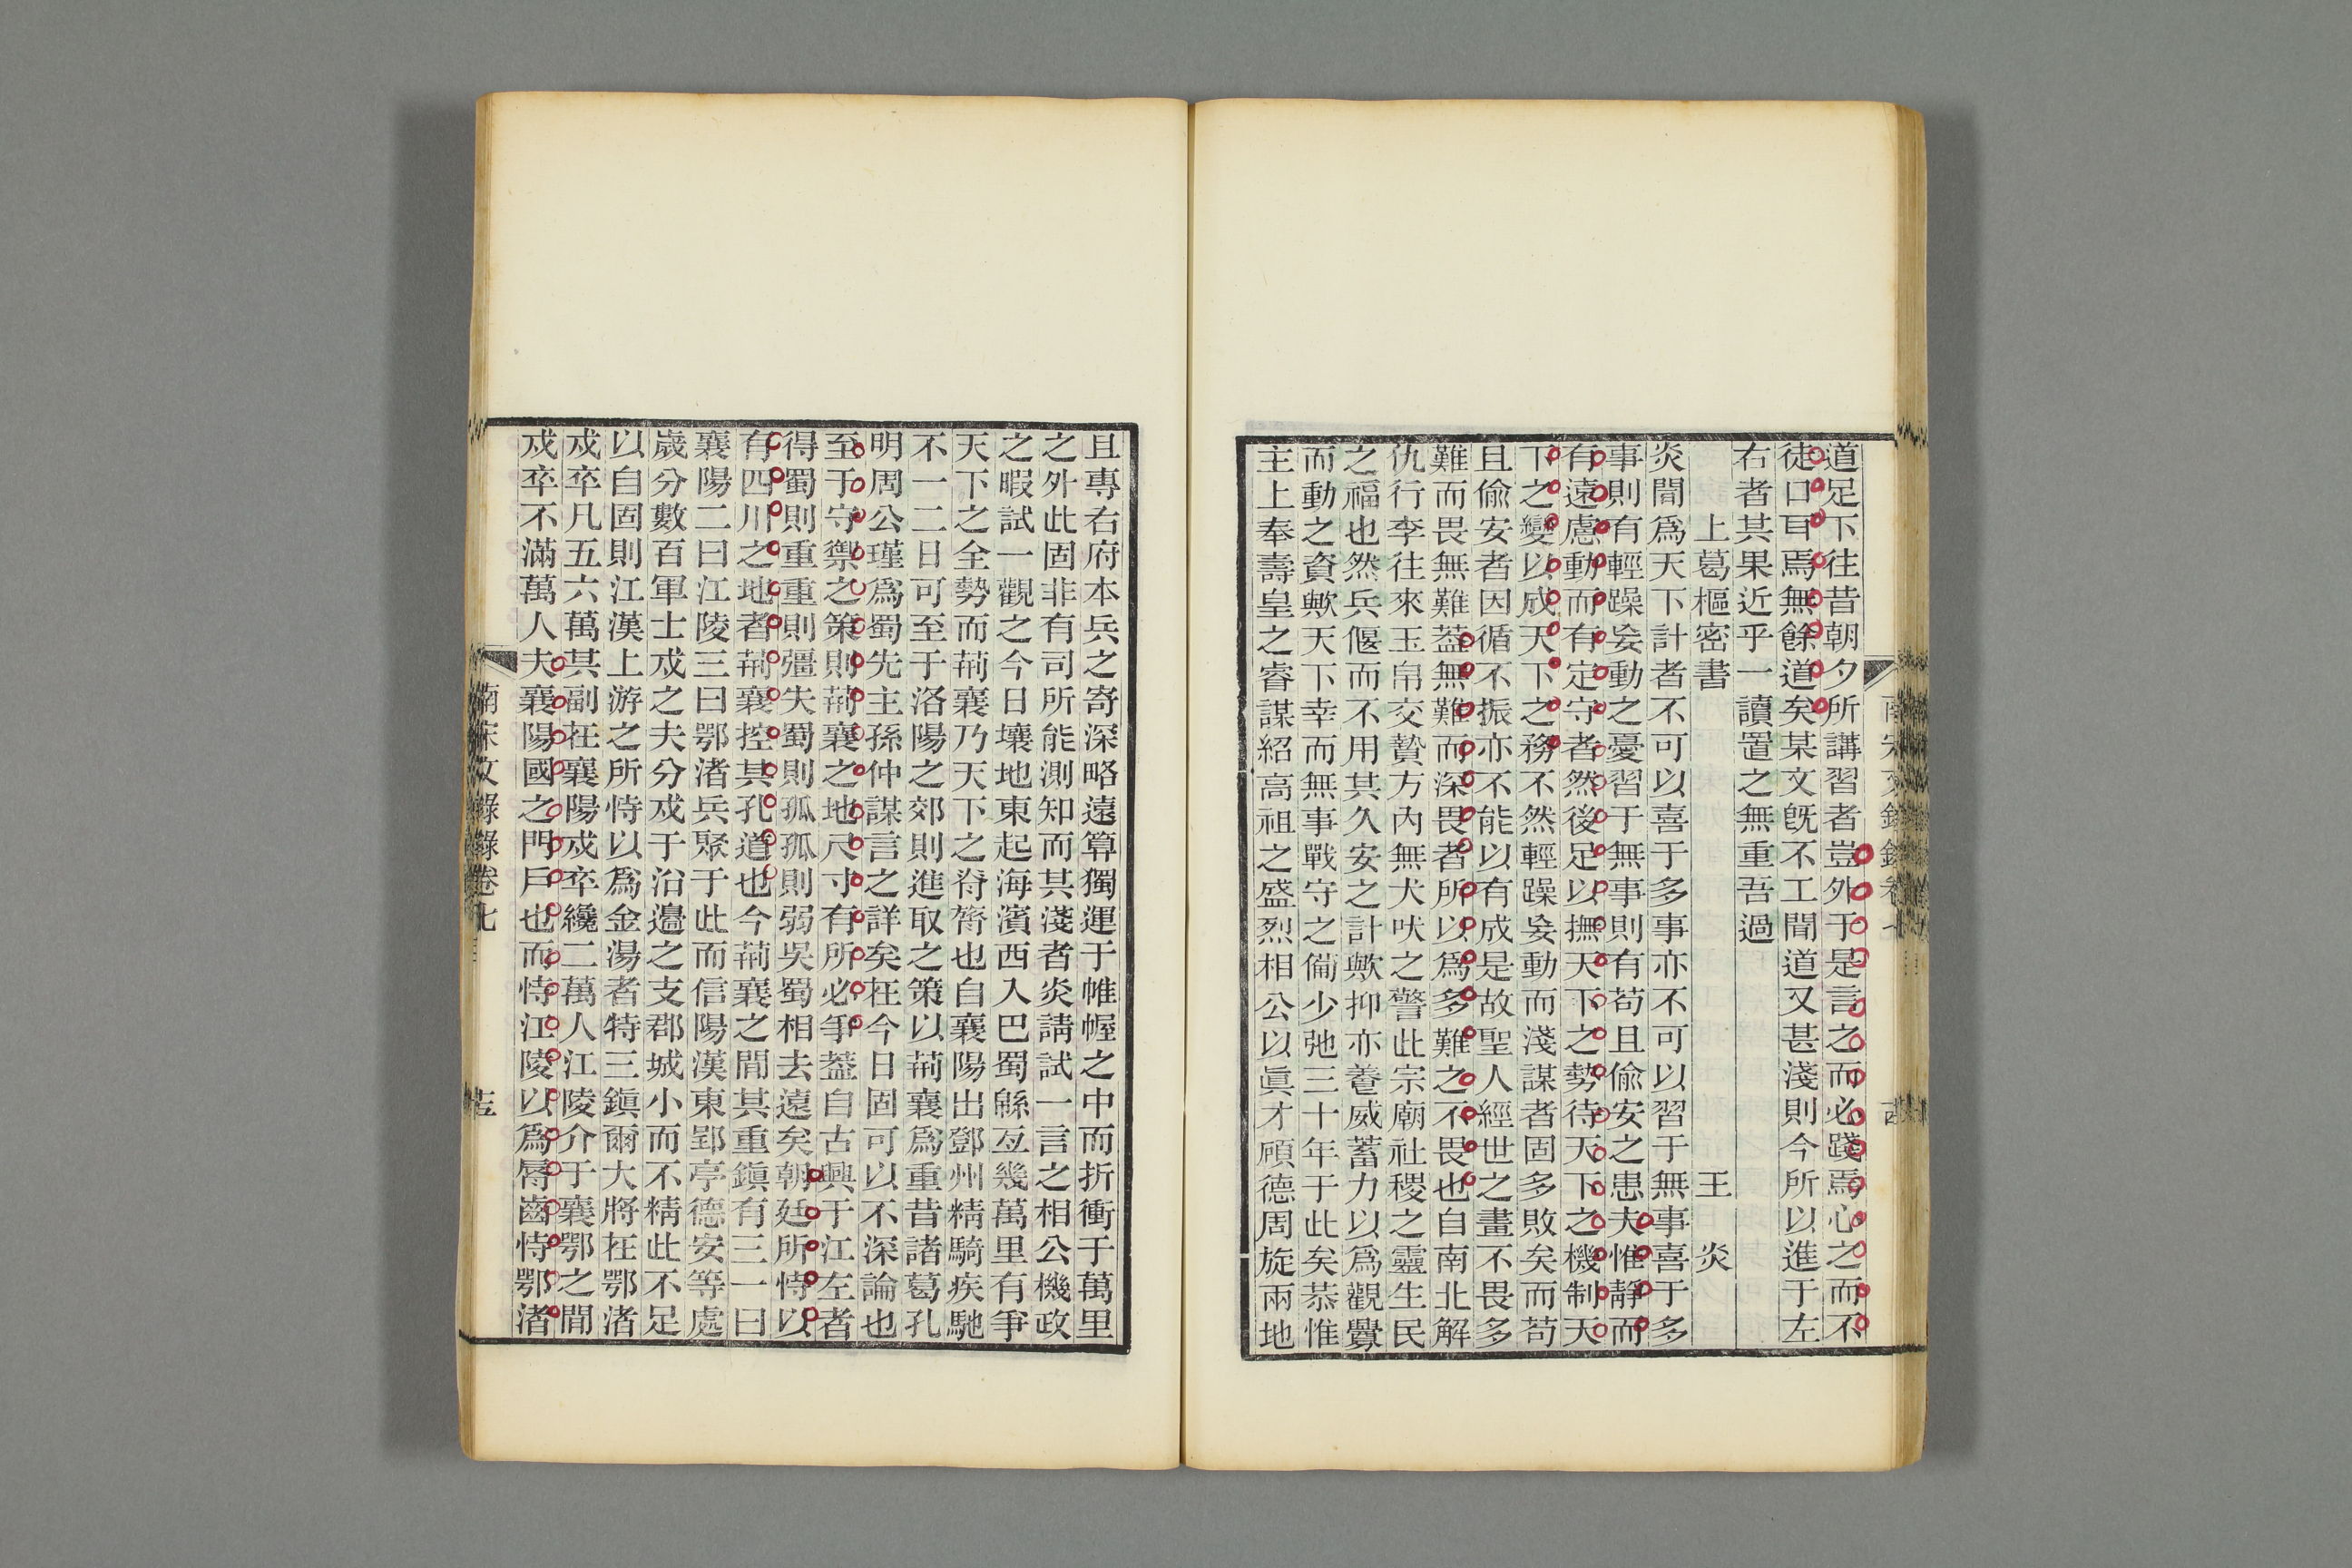 道足下往昔朝夕所講習者豈外于是言之而必踐焉心之而不
徒口耳焉無餘道矣某文旣不工聞道又甚淺則今所以進于左
右者其果近乎一讀置之無重吾過
上葛樞密書　王　炎
炎聞爲天下計者不可以喜于多事亦不可以習于無事喜于多
事則有輕躁妄動之憂習于無事則有苟且偷安之患夫惟靜而
有遠慮動而有定守者然後足以撫天下之勢待天下之機制天
下之變以成天下之務不然輕躁妄動而淺謀者固多敗矣而苟
且偷安者因循不振亦不能以有成是故聖人經世之畫不畏多
難而畏無難葢無難而深畏者所以爲多難之不畏也自南北解
仇行李往來玉帛交贄方內無犬吠之警此宗廟社稷之靈生民
之福也然兵偃而不用其久安之計歟抑亦養威蓄力以爲觀釁
而動之資歟天下幸而無事戰守之僃少弛三十年于此矣恭惟
主上奉壽皇之睿謀紹高祖之盛烈相公以眞才碩德周旋兩地
且專右府本兵之寄深略遠算獨運于帷幄之中而折衝于萬里
之外此固非有司所能測知而其淺者炎請試一言之相公機政
之暇試一觀之今日壤地東起海濱西入巴蜀緜亙幾萬里有爭
天下之全勢而荊襄乃天下之脊膂也自襄陽出鄧州精騎疾馳
不一二日可至于洛陽之郊則進取之策以荊襄爲重昔諸葛孔
明周公瑾爲蜀先主孫仲謀言之詳矣在今日固可以不深論也
至于守禦之策則荊襄之地尺寸有所必爭葢自古興于江左者
得蜀則重重則彊失蜀則孤孤則弱吳蜀相去遠矣朝廷所恃以
有四川之地者荊襄控其孔道也今荊襄之閒其重鎭有三一曰
襄陽二曰江陵三曰鄂渚兵聚于此而信陽漢東郢亭德安等處
歲分數百軍士戍之夫分戍于沿邊之支郡城小而不精此不足
以自固則江漢上游之所恃以爲金湯者特三鎭爾大將在鄂渚
戍卒凡五六萬其副在襄陽戍卒纔二萬人江陵介于襄鄂之閒
戍卒不滿萬人夫襄陽國之門戶也而恃江陵以爲脣齒恃鄂渚
南宋文錄錄卷七